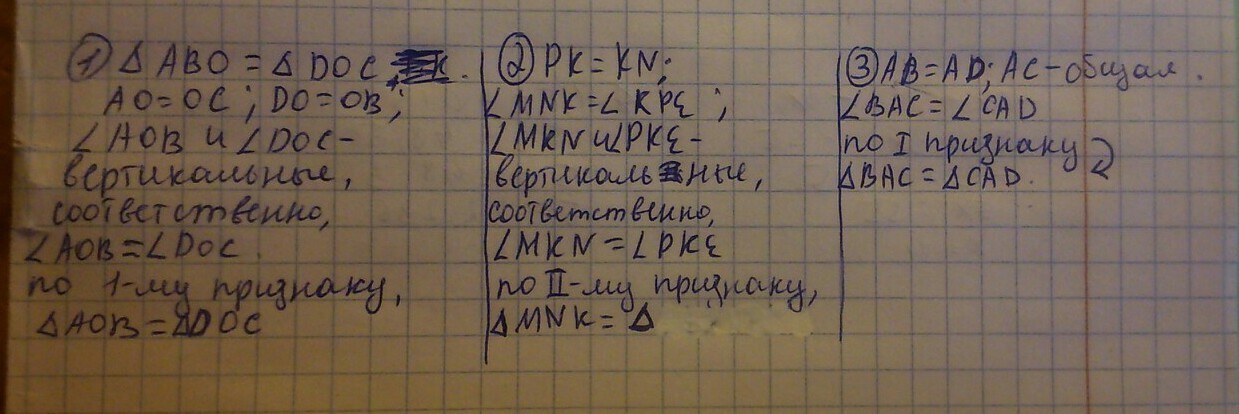 ① Δ ABO = Δ DOC
AO=OC; DO=OB;
∠AOB и ∠DOC-
вертикальные,
соответственно,
∠AOB=∠DOC.
по 1-му признаку,
ΔAOB=ΔDOC
② PK=KN;
∠MNK=∠KPE;
∠MKN и ∠PKE-
вертикальные,
соответственно,
∠MKN=∠PKE
по II-му признаку,
ΔMNK=Δ
③ AB=AD; AC-общая.
∠BAC=∠CAD
по I признаку
ΔBAC=ΔCAD.